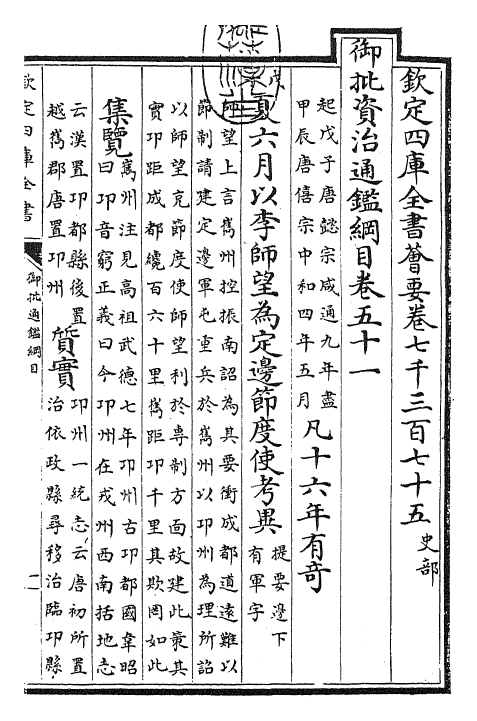 欽定四庫全書薈要卷七千三百七十五 史部
御批資治通鑑綱目卷五十一
起戊子唐懿宗咸通九年盡
甲辰唐僖宗中和四年五月
凡十六年有奇
夏六月以李師望為定邊節度使考異
提要邊下
有軍字
師望上言嶲州控扼南詔為其要衝成都道遠難以
節制請建定邊軍屯重兵於嶲州以卭州為理所詔
以師望充節度使師望利於專制方面故建此策其
實卭距成都纔百六十里嶲距卭千里其欺罔如此
集覽
嶲州注見高祖武德七年卭州古卭都國韋昭
曰卭音窮正義曰今卭州在戎州西南括地志
云漢置卭都縣後置
越嶲郡唐置卭州
質實
卭州一統志云唐初所置
治依政縣尋移治臨卭縣
欽定四庫全書
御批通鑑綱目